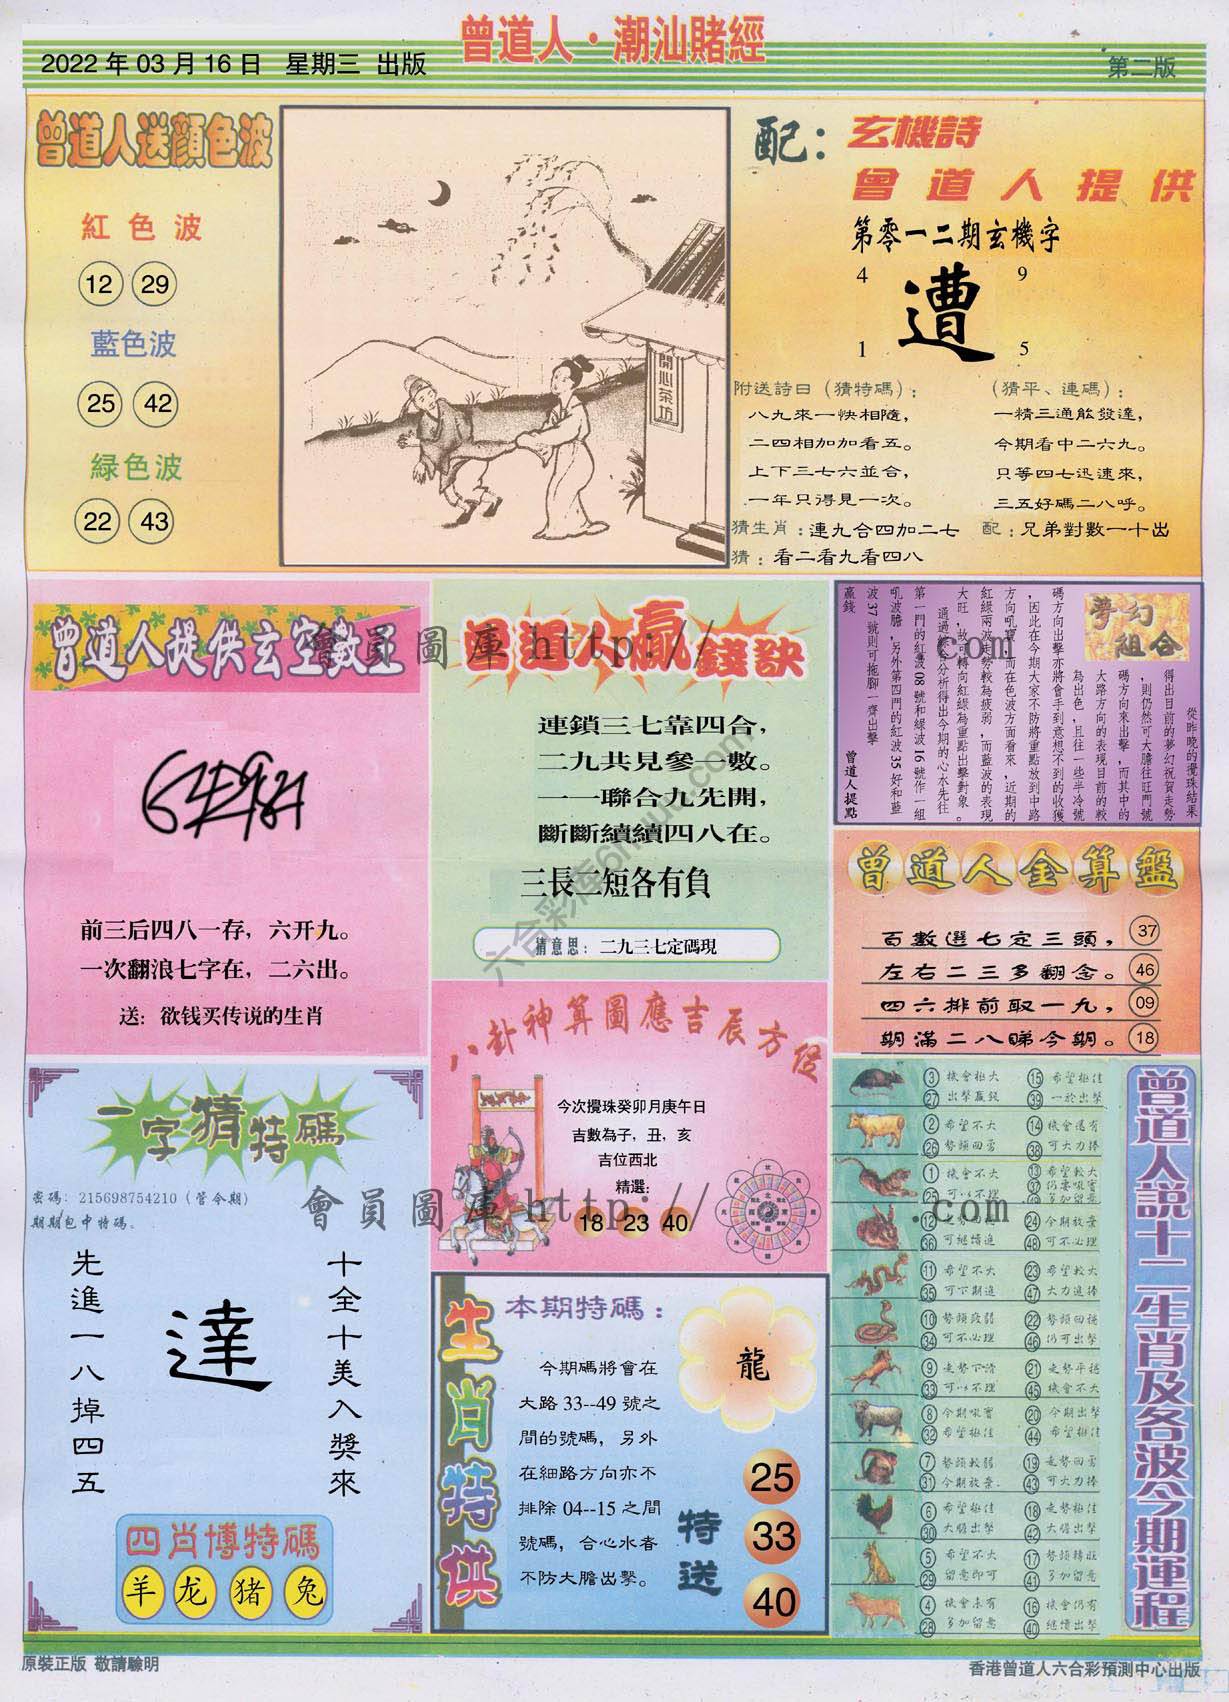 曾道人·潮汕賭經
2022 年 03 月 16 日 星期三 出版
第二版
曾道人送顏色波
紅色波
12 29
藍色波
25 42
緑色波
22 43
開心茶坊
配：玄機詩
曾道人提供
第零一二期玄機字
4 9
遭
1 5
附送詩曰（猜特碼）：
八九來一快相隨，
二四相加加看五。
上下三七六並合，
一年只得見一次。
（猜平、連碼）：
一精三通能發達，
今期看中二六九。
只等四七迅速來，
三五好碼二八呼。
猜生肖：連九合四加二七
配：兄弟對數一十出
猜：看二看九看四八
曾道人提供玄空數王
前三后四八一存，六开九。
一次翻浪七字在，二六出。
送：欲钱买传说的生肖
曾道人贏錢訣
連鎖三七靠四合，
二九共見參一數。
一一聯合九先開，
斷斷續續四八在。
三長二短各有負
猜意思：二九三七定碼現
夢幻組合
從昨晚的攪珠結果
得出目前的夢幻祝賀走勢
，則仍然可大膽往旺門號
碼方向來出擊，而其中的
大路方向的表現目前的較
為出色，且往一些半冷號
碼方向出擊亦將會手到意想不到的收獲
，因此在今期大家不防將重點放到中路
方向吼寶，而在色波方面看來，近期的
紅綠兩波走勢較為疲弱，而藍波的表現
大旺，故可轉向紅綠為重點出擊對象。
通過綜合分析得出今期的心水先往
第一門的紅波 08 號和緑波 16 號作一組
吼波膽，另外第四門的紅波 35 好和藍
波 37 號則可拖腳一齊出擊
贏錢
曾道人提點
曾道人金算盤
百數選七定三頭， 37
左右二三多翻念。 46
四六排前取一九， 09
期滿二八睇今期。 18
八卦神算圖應吉辰方位
今次攪珠癸卯月庚午日
吉數為子，丑，亥
吉位西北
精選：
18 23 40
一字猜特碼
密碼：215698754210（管令期）
期期包中特碼。
十全十美入獎來
達
先進一八掉四五
四肖博特碼
羊 龙 猪 兔
生肖特供
本期特碼：
龍
今期碼將會在
大路 33--49 號之
間的號碼，另外
在細路方向亦不
排除 04--15 之間
號碼，合心水者
不防大膽出擊。
特送
25
33
40
曾道人説十二生肖及各波今期運程
3 機會極大 15 希望極佳
27 出擊贏銀 39 一於出擊
2 希望不大 14 機會還有
26 勢頭回勇 38 可大力捧
1 機會不大 13 希望較大
25 可以不理 37 仍要吼實
多加留意
12 24 今期放棄
36 可繼續追 48 可不必理
11 希望不大 23 希望較大
35 可下期追 47 大力追捧
10 勢頭疲弱 22 勢頭回穩
34 可不必理 46 仍可出擊
9 走勢下滑 21 走勢平穩
33 可以不理 45 機會不大
8 今期吼寶 20 今期出擊
32 希望極佳 44 希望極佳
7 勢頭較弱 19 走勢回勇
31 今期放棄 43 可大力捧
6 希望極佳 18 走勢極佳
30 大膽出擊 42 大膽出擊
5 希望不大 17 勢頭轉旺
29 留意即可 41 多加留意
4 機會未有 16 機會仍有
28 多加留意 40 繼續出擊
會員圖庫 http:// .com
會員圖庫 http:// .com
原裝正版 敬請驗明
香港曾道人六合彩預測中心出版